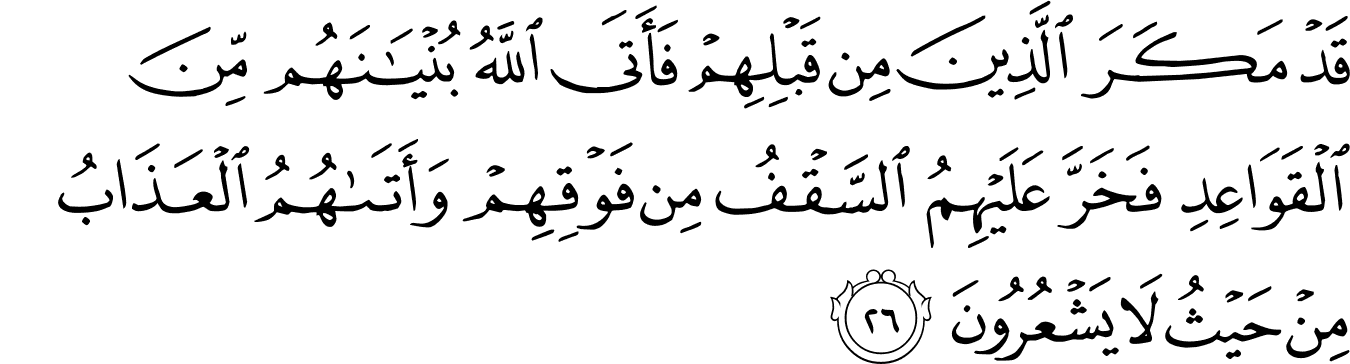 قَدۡ مَكَرَ ٱلَّذِينَ مِن قَبۡلِهِمۡ فَأَتَى ٱللَّهُ بُنۡيَٰنَهُم مِّنَ
ٱلۡقَوَاعِدِ فَخَرَّ عَلَيۡهِمُ ٱلسَّقۡفُ مِن فَوۡقِهِمۡ وَأَتَىٰهُمُ ٱلۡعَذَابُ
مِنۡ حَيۡثُ لَا يَشۡعُرُونَ ٢٦